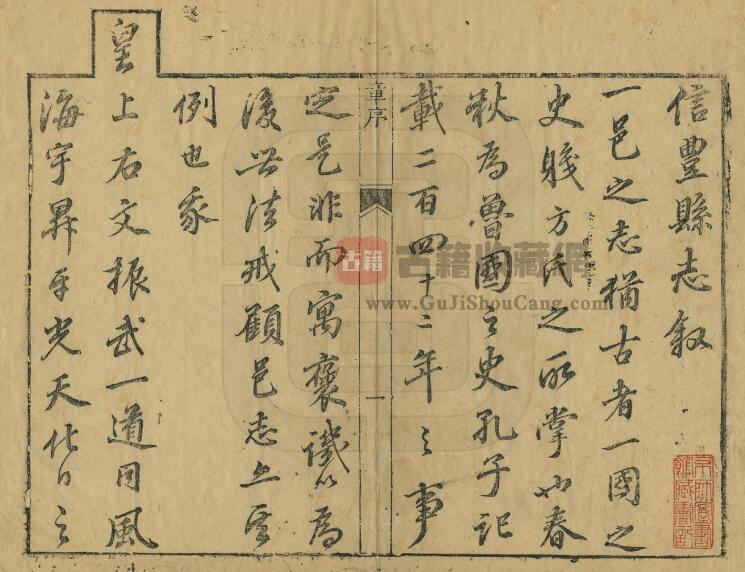 信豐縣志敘
一邑之志猶古者一國之
史職方氏之所掌也春
秋為魯國之史孔子記
載二百四十二年之事
童序
一
定是非而寓褒譏以為
後世法戒顧邑志亦其
例也我
皇上右文振武一道同風
海宇昇平光天化日之
京師圖書
館藏書記
古籍
古籍收藏網
www.GuJiShouCang.com